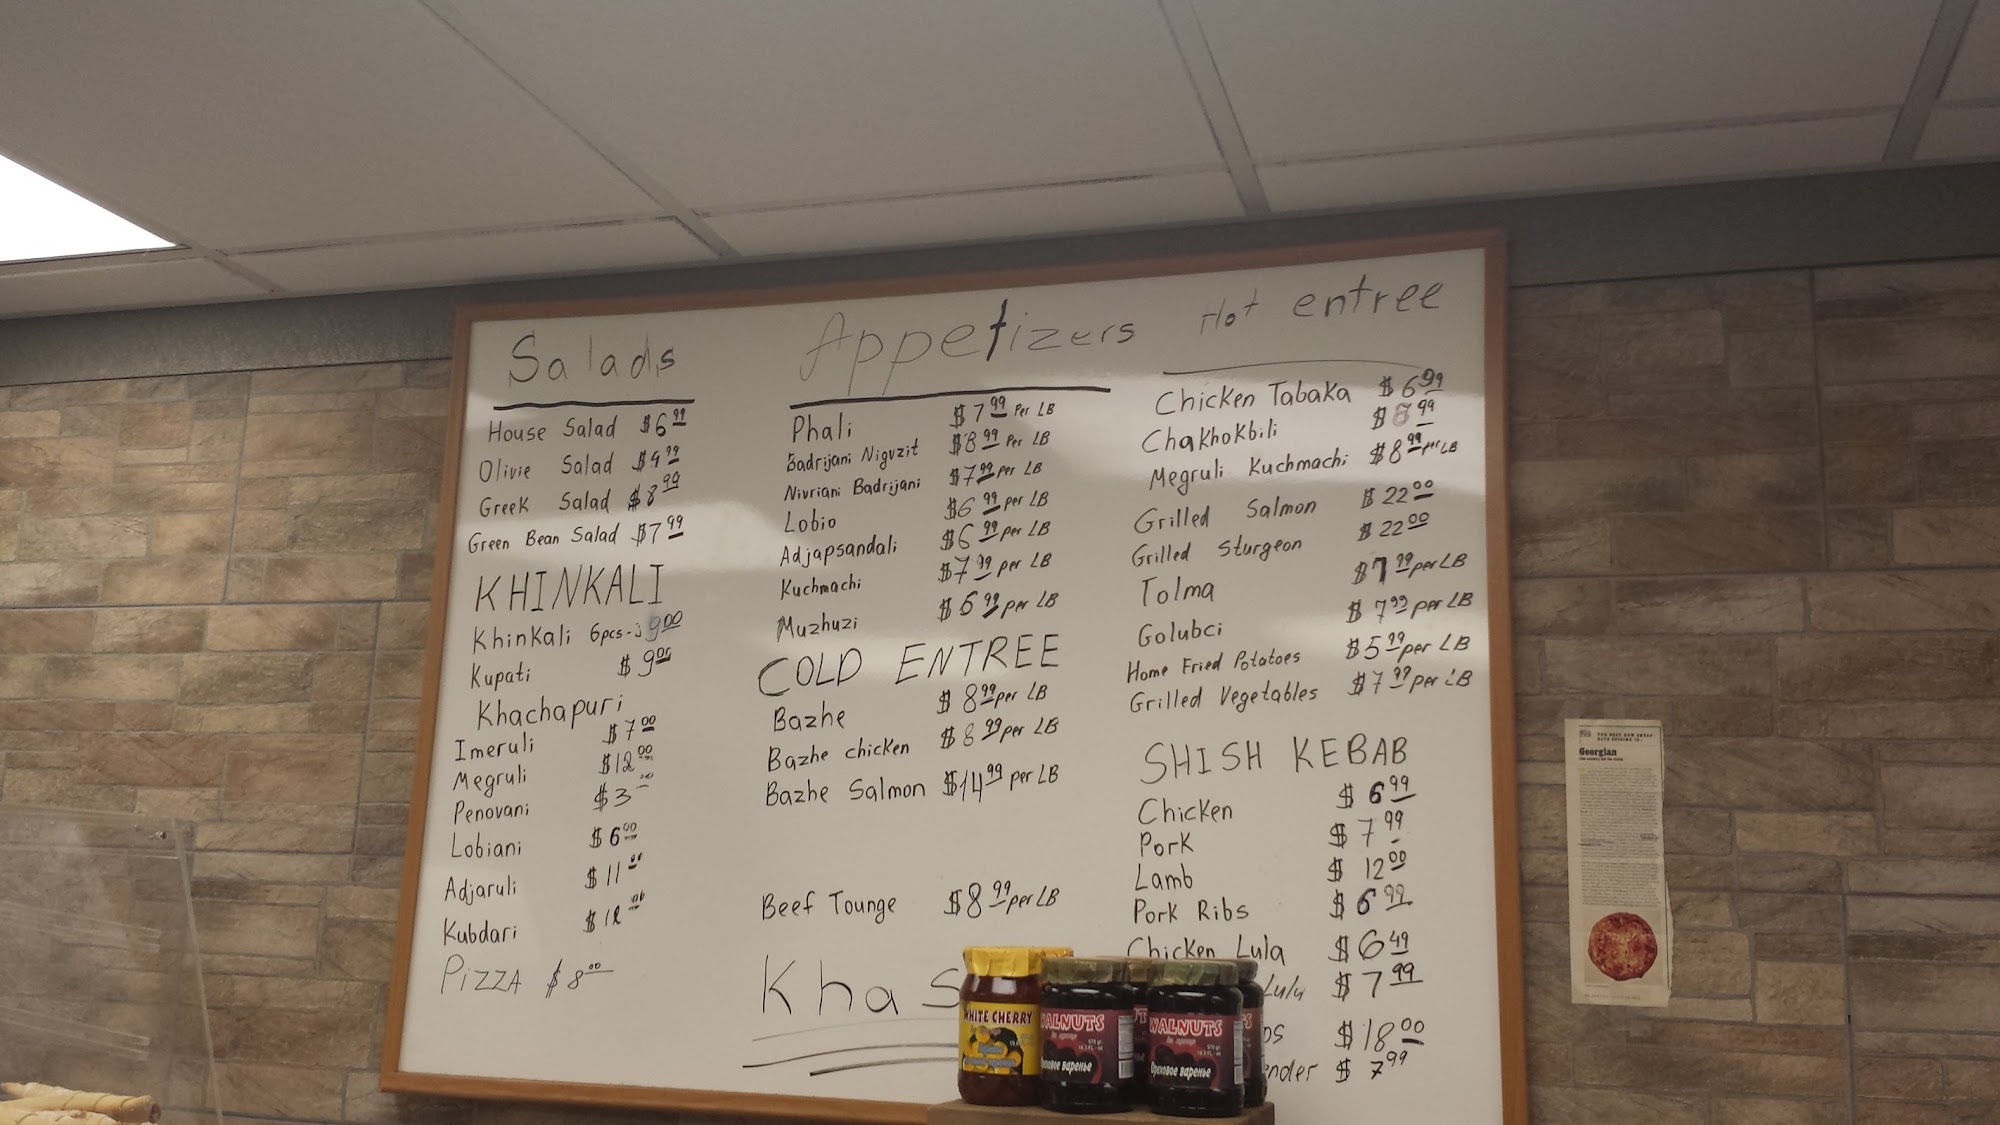 Salads
House Salad $6.99
Olivie Salad $4.99
Greek Salad $8.99
Green Bean Salad $7.99
KHINKALI
Khinkali 6pcs - 9.00
Kupati $9.00
Khachapuri
Imeruli $7.00
Megruli $12.00
Penovani $3.00
Lobiani $6.00
Adjaruli $11.00
Kubdari $12.00
PIZZA $8.00
Appetizers
Phali $7.99 Per LB
Badrijani Nigvzit $8.99 Per LB
Nivriani Badrijani $7.99 per LB
Lobio $6.99 per LB
Adjapsandali $6.99 per LB
Kuchmachi $7.99 per LB
Muzhuzi $6.99 per LB
COLD ENTREE
Bazhe $8.99 per LB
Bazhe chicken $8.99 per LB
Bazhe Salmon $14.99 per LB
Beef Tounge $8.99 per LB
Khas
Hot entree
Chicken Tabaka $6.99
Chakhokbili $8.99
Megruli Kuchmachi $8.99 per LB
Grilled Salmon $22.00
Grilled Sturgeon $22.00
Tolma $7.99 per LB
Golubci $7.99 per LB
Home Fried Potatoes $5.99 per LB
Grilled Vegetables $7.99 per LB
SHISH KEBAB
Chicken $6.99
Pork $7.99
Lamb $12.00
Pork Ribs $6.99
Chicken Lula $6.49
Lula $7.99
$18.00
ender $7.99
WHITE CHERRY
WALNUTS
Ореховое варенье
WALNUTS
Ореховое варенье
Georgian